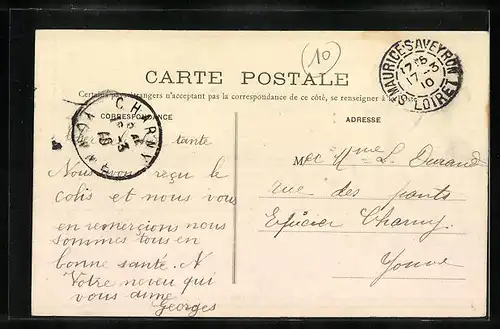 10
CARTE POSTALE
Certains pays étrangers n'acceptant pas la correspondance de ce côté, se renseigner à la Poste
ST MAURICE-S-AVEYRON
17-3
10
LOIRET
CORRESPONDANCE
ADRESSE
CHARNY
YONNE
tante
Nous avons reçu le
colis et nous vous
en remercions nous
sommes tous en
bonne santé.
Votre neveu qui
vous aime
Georges
M Mme L. Durand
rue des ponts
Epicier Charny
Yonne